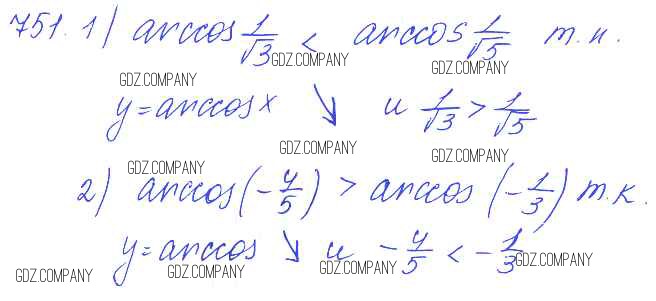 751. 1) arccos 1/√3 < arccos 1/√5 т.к.
GDZ.COMPANY GDZ.COMPANY
GDZ.COMPANY
y = arccos x ↘ и 1/√3 > 1/√5
GDZ.COMPANY
GDZ.COMPANY GDZ.COMPANY
2) arccos(-4/5) > arccos(-1/3) т.к.
y = arccos ↘ и -4/5 < -1/3
GDZ.COMPANY GDZ.COMPANY GDZ.COMPANY GDZ.COMPANY